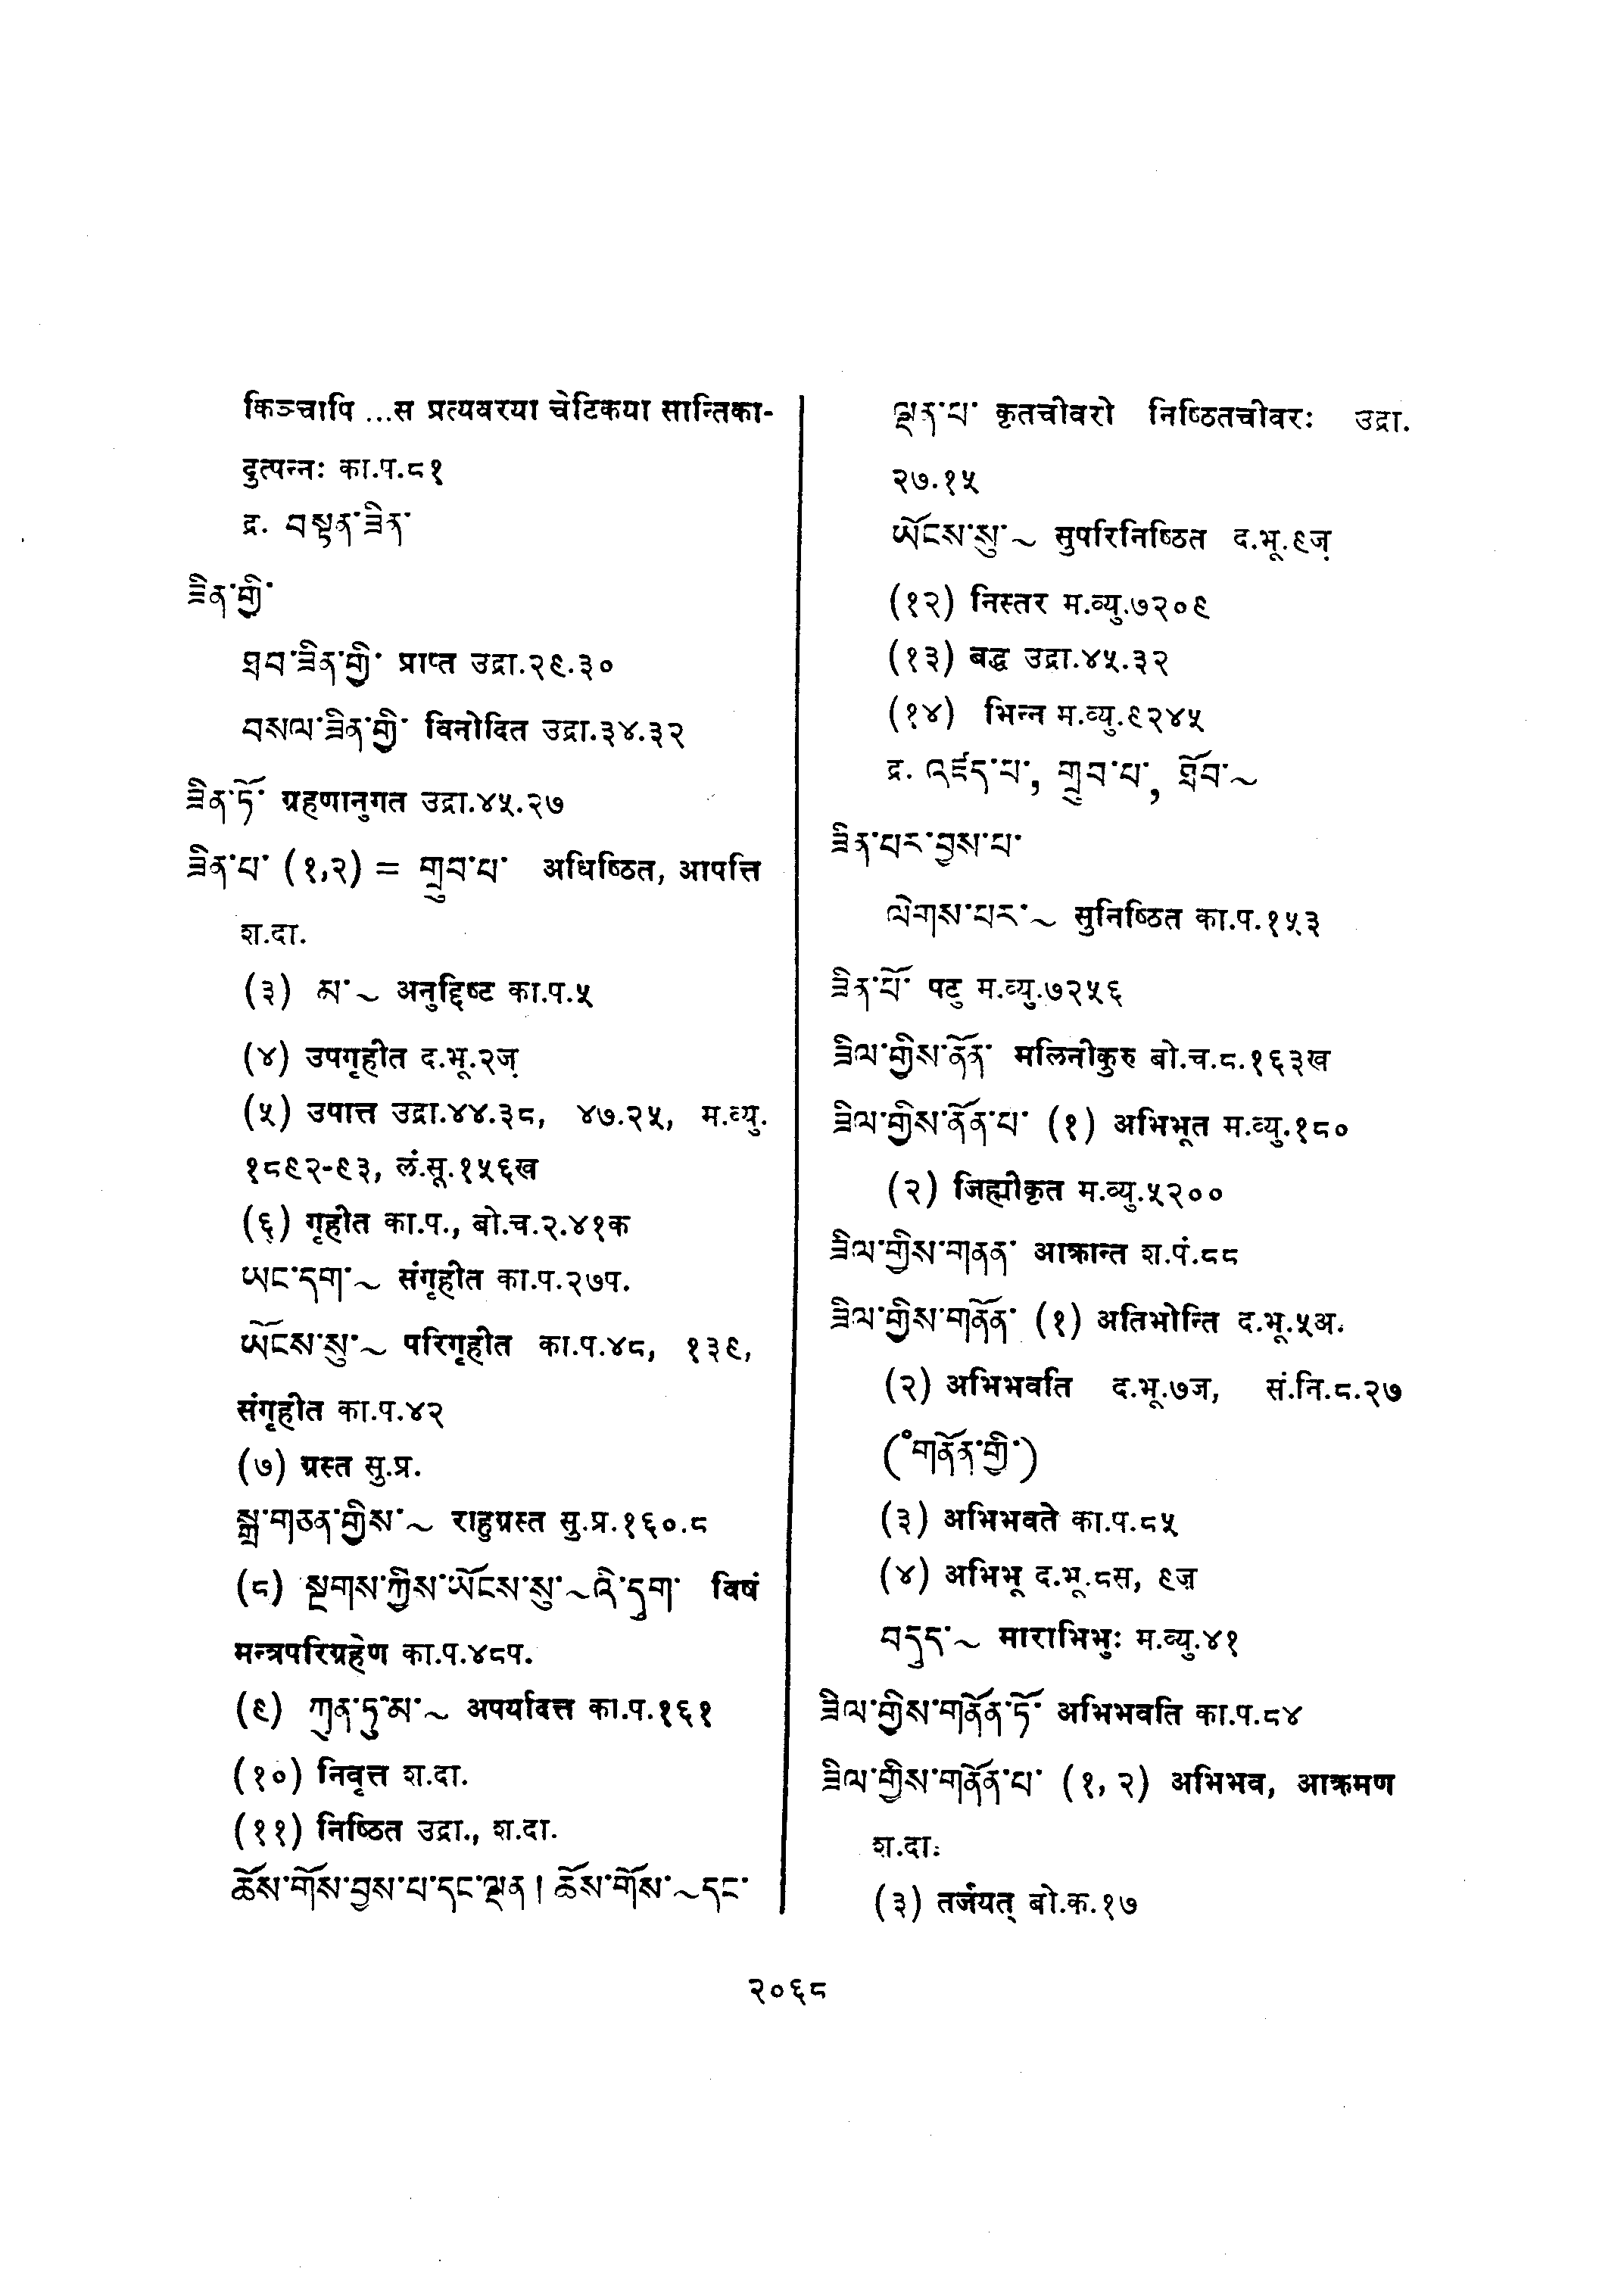 किञ्चापि ...स प्रत्यवरया चेटिकया सान्तिका-
दुत्पन्नः का.प.८१
द्र. བསྟན་ཟིན་
ཟིན་གྱི་
ཐབ་ཟིན་གྱི་ प्राप्त उद्रा.२९.३०
བསལ་ཟིན་གྱི་ विनोदित उद्रा.३४.३२
ཟིན་ཏོ་ ग्रहणानुगत उद्रा.४५.२७
ཟིན་པ་ (१,२) = གྲུབ་པ་ अधिष्ठित, आपत्ति
श.दा.
(३) མ་~ अनुद्दिष्ट का.प.५
(४) उपगृहीत द.भू.२ज़
(५) उपात्त उद्रा.४४.३८, ४७.२५, म.व्यु.
१८९२-९३, लं.सू.१५६ख
(६) गृहीत का.प., बो.च.२.४१क
ཡང་དག་~ संगृहीत का.प.२७प.
ཡོངས་སུ་~ परिगृहीत का.प.४८, १३९,
संगृहीत का.प.४२
(७) ग्रस्त सु.प्र.
སྒྲ་གཅན་གྱིས་~ राहुग्रस्त सु.प्र.१६०.८
(८) སྔགས་ཀྱིས་ཡོངས་སུ་~འི་དུག་ विषं
मन्त्रपरिग्रहेण का.प.४८प.
(९) ཀུན་ཏུ་མ་~ अपर्यादत्त का.प.१६१
(१०) निवृत्त श.दा.
(११) निष्ठित उद्रा., श.दा.
ཆོས་གོས་བྱས་པ་དང་ལྡན། ཆོས་གོས་~དང་
ལྡན་པ་ कृतचीवरो निष्ठितचीवरः उद्रा.
२७.१५
ཡོངས་སུ་~ सुपरिनिष्ठित द.भू.९ज़
(१२) निस्तर म.व्यु.७२०९
(१३) बद्ध उद्रा.४५.३२
(१४) भिन्न म.व्यु.९२४५
द्र. འཛད་པ་, གྲུབ་པ་, ཐོབ་~
ཟིན་པར་བྱས་པ་
ལེགས་པར་~ सुनिष्ठित का.प.१५३
ཟིན་པོ་ पटु म.व्यु.७२५६
ཟིལ་གྱིས་ནོན་ मलिनीकुरु बो.च.८.१६३ख
ཟིལ་གྱིས་ནོན་པ་ (१) अभिभूत म.व्यु.१८०
(२) जिह्मीकृत म.व्यु.५२००
ཟིལ་གྱིས་གནན་ आक्रान्त श.पं.८८
ཟིལ་གྱིས་གནོན་ (१) अतिभोन्ति द.भू.५अ.
(२) अभिभवति द.भू.७ज, सं.नि.८.२७
(°གནོན་གྱི་)
(३) अभिभवते का.प.८५
(४) अभिभू द.भू.८स, ९ज़
བདུད་~ माराभिभुः म.व्यु.४१
ཟིལ་གྱིས་གནོན་ཏོ་ अभिभवति का.प.८४
ཟིལ་གྱིས་གནོན་པ་ (१, २) अभिभव, आक्रमण
श.दा.
(३) तर्जयत् बो.क.१७
२०६८